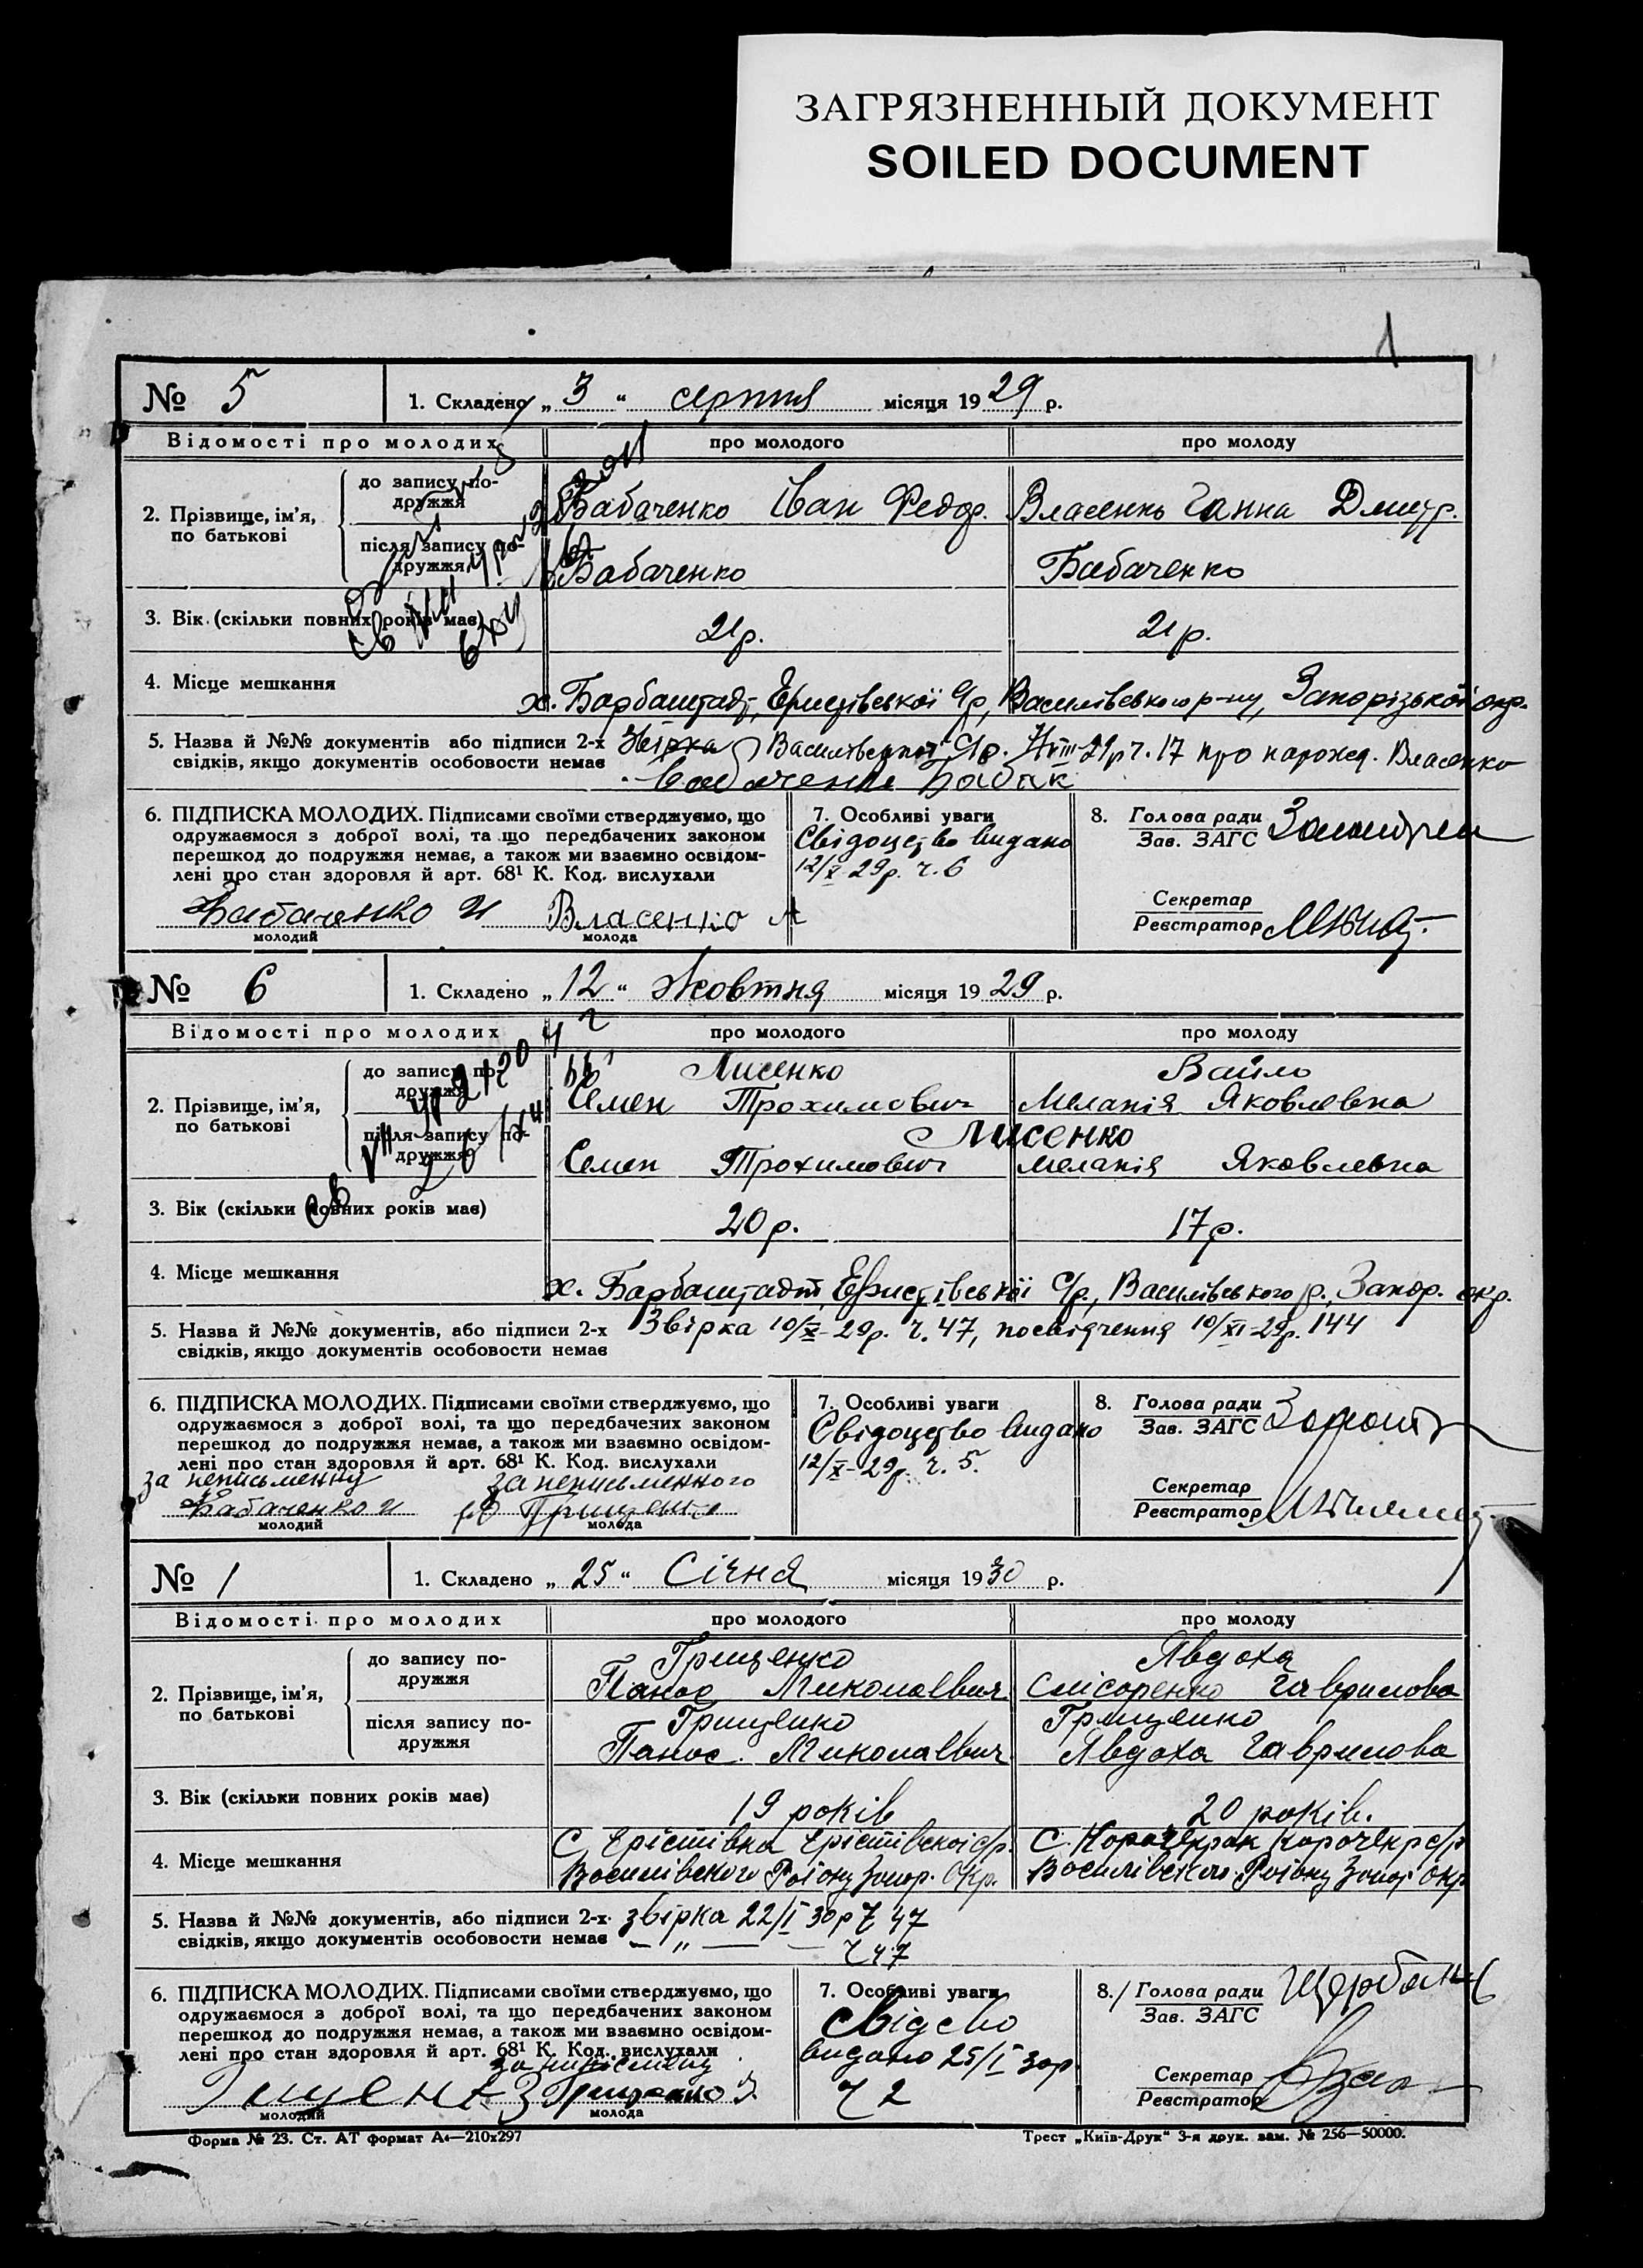 ЗАГРЯЗНЕННЫЙ ДОКУМЕНТ
SOILED DOCUMENT
1
№ 5 1. Складено „3“ серпня місяця 1929 р.
Відомості про молодих про молодого про молоду
2. Прізвище, ім’я, по батькові
до запису подружжя Бабаченко Іван Федор. Власенко Ганна Дмитр.
після запису подружжя Бабаченко Бабаченко
3. Вік (скільки повних років має) 21р. 21р.
4. Місце мешкання х. Барбаштадт, Еристівської С/р, Василівського р-ну, Запорізької окр.
5. Назва й №№ документів або підписи 2-х Звірка Василівської С/р. VIII-29р ч. 17 про нарожд. Власенко
свідків, якщо документів особовости немає
6. ПІДПИСКА МОЛОДИХ. Підписами своїми стверджуємо, що
одружаємося з доброї волі, та що передбачених законом
перешкод до подружжя немає, а також ми взаємно освідом-
лені про стан здоровля й арт. 68¹ К. Код. вислухали
Бабаченко И Власенко А
молодий молода
7. Особливі уваги
Свідоцтво видано
12/X-29р. ч. 6
8. Голова ради
Зав. ЗАГС
Секретар
Реєстратор
№ 6 1. Складено „12“ Жовтня місяця 1929 р.
Відомості про молодих про молодого про молоду
2. Прізвище, ім’я, по батькові
до запису подружжя Лисенко Вайло
Семен Трохимович Меланія Яковлевна
після запису подружжя Лисенко
Семен Трохимович Меланія Яковлевна
3. Вік (скільки повних років має) 20р. 17р.
4. Місце мешкання х. Барбаштадт, Еристівської С/р., Василівського р., Запор. окр.
5. Назва й №№ документів, або підписи 2-х Звірка 10/X-29р. ч. 47, посвідчення 10/XI-29р. 144
свідків, якщо документів особовости немає
6. ПІДПИСКА МОЛОДИХ. Підписами своїми стверджуємо, що
одружаємося з доброї волі, та що передбачених законом
перешкод до подружжя немає, а також ми взаємно освідом-
лені про стан здоровля й арт. 68¹ К. Код. вислухали
за неписьменну за неписьменного
Бабаченко и Грищенко
молодий молода
7. Особливі уваги
Свідоцтво видано
12/X-29р. ч. 5.
8. Голова ради
Зав. ЗАГС
Секретар
Реєстратор
№ 1 1. Складено „25“ Січня місяця 1930 р.
Відомості про молодих про молодого про молоду
2. Прізвище, ім’я, по батькові
до запису подружжя Грищенко Явдоха
Панас Миколаєвич Слісоренко Гаврилова
після запису подружжя Грищенко Грищенко
Панас Миколаєвич Явдоха Гаврилова
3. Вік (скільки повних років має) 19 років 20 років.
4. Місце мешкання С. Ерістівка Ерістівскої с/р. С. Корачекрак Корочекр с/р
Василівского Раіону Запор. Окр. Василівского Раіону Запор Окр
5. Назва й №№ документів, або підписи 2-х звірка 22/I 30р Ч 47
свідків, якщо документів особовости немає — „ — Ч 47
6. ПІДПИСКА МОЛОДИХ. Підписами своїми стверджуємо, що
одружаємося з доброї волі, та що передбачених законом
перешкод до подружжя немає, а також ми взаємно освідом-
лені про стан здоровля й арт. 68¹ К. Код. вислухали
молодий молода
7. Особливі уваги
свідство
видано 25/I 30р.
Ч 2
8. Голова ради
Зав. ЗАГС
Секретар
Реєстратор
Форма № 23. Ст. АТ формат А₄—210х297 Трест „Київ-Друк“ 3-я друк. зам. № 256—50000.